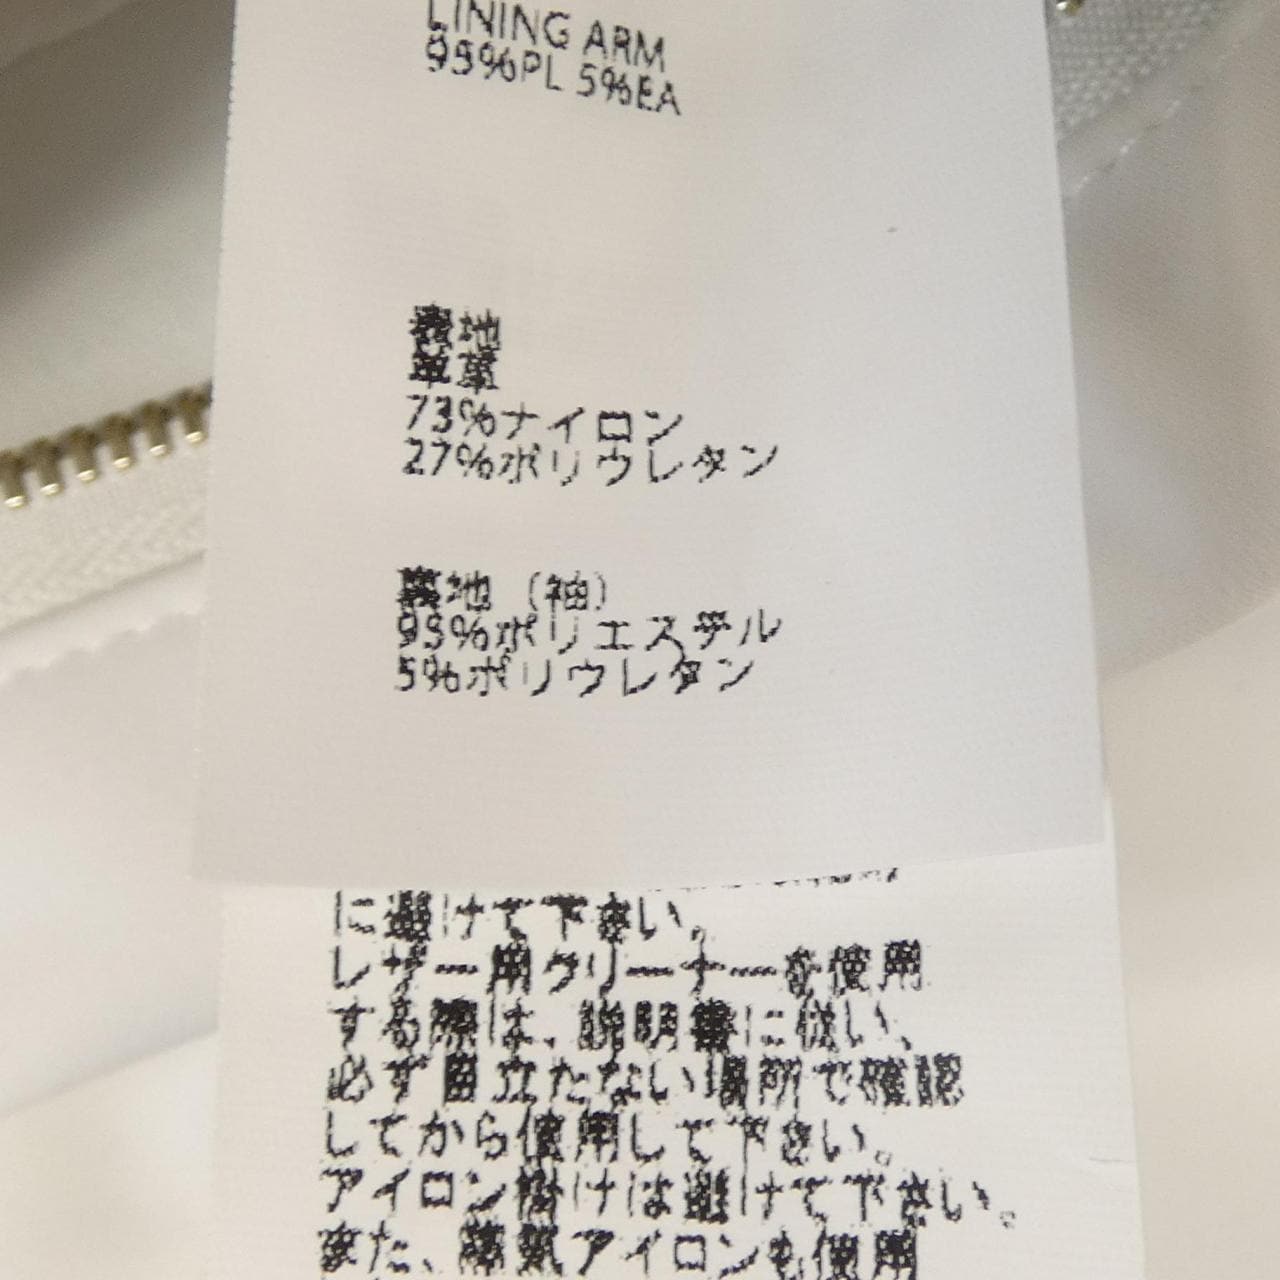 LINING ARM
95%PL 5%EA
表地
羊革
73%ナイロン
27%ポリウレタン
裏地 (袖)
95%ポリエステル
5%ポリウレタン
に避けて下さい。
レザー用クリーナーを使用
する際は、説明書に従い、
必ず目立たない場所で確認
してから使用して下さい。
アイロン掛けは避けて下さい。
また、蒸気アイロンも使用